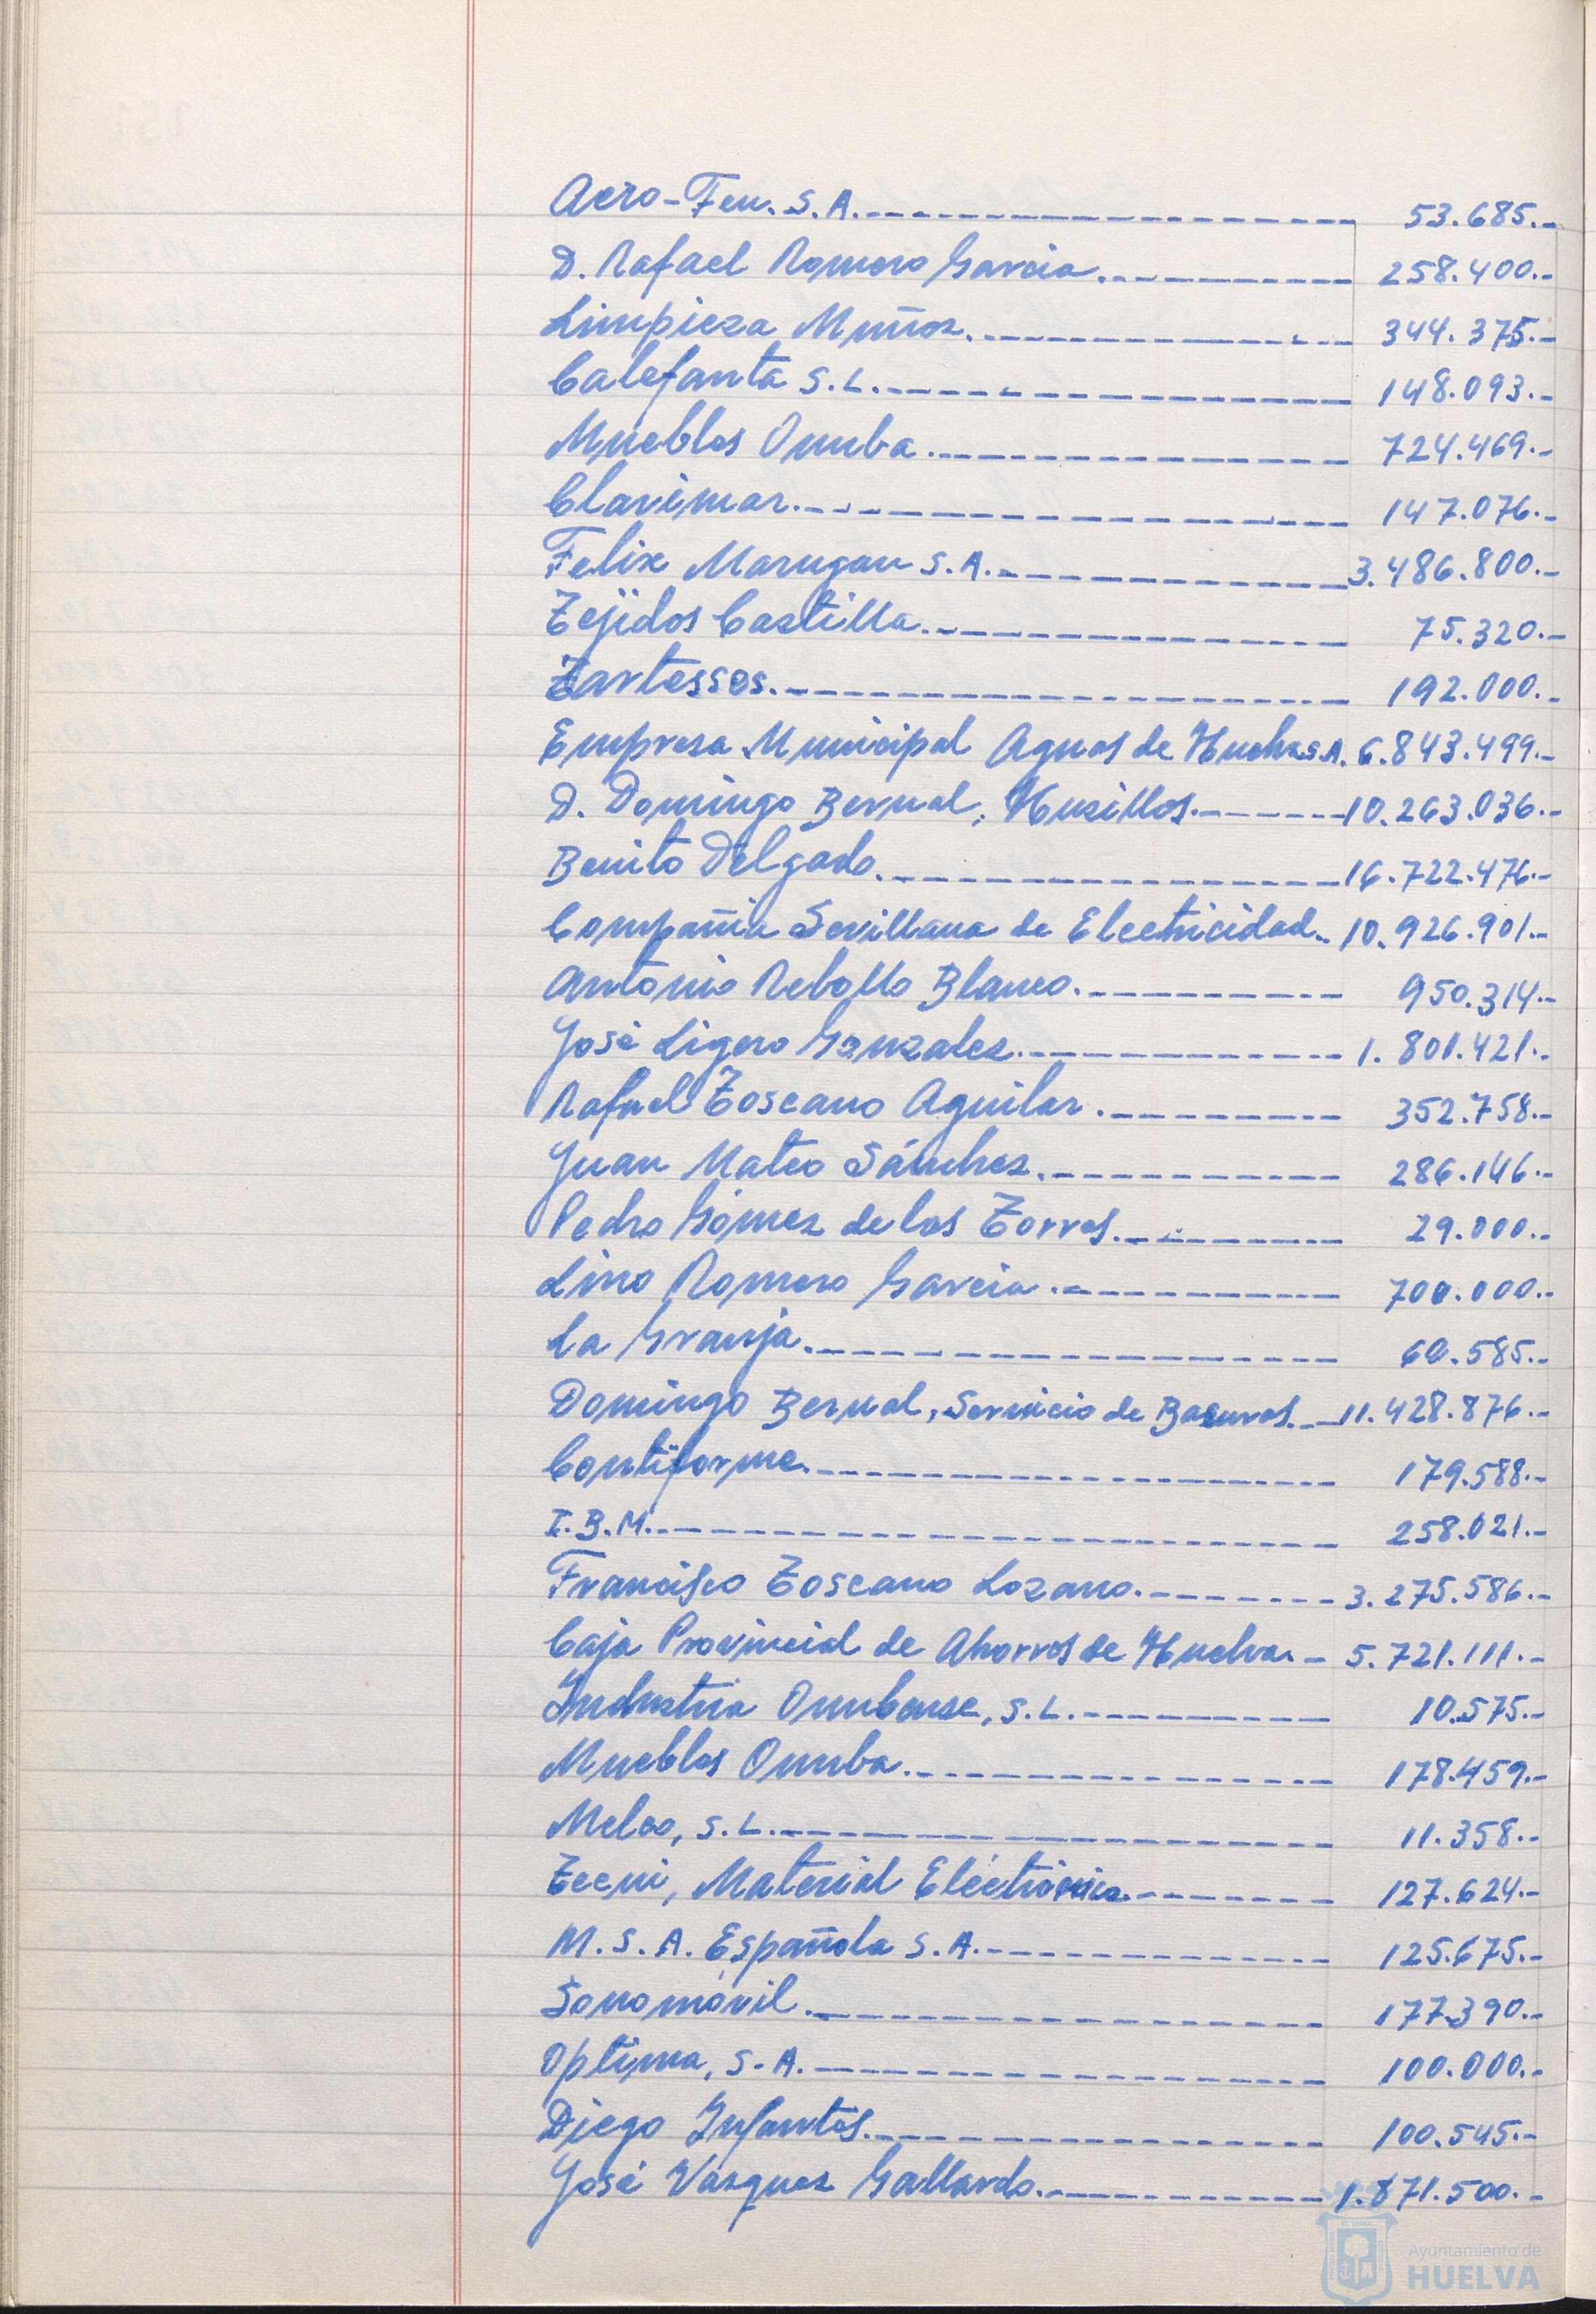 Aero-Feu. S.A. 53.685.-
D. Rafael Romero Garcia 258.400.-
Limpieza Muñoz 344.375.-
Calefanta S.L. 148.093.-
Muebles Onuba 724.469.-
Clavimar 147.076.-
Felix Marugau S.A. 3.486.800.-
Tejidos Castilla 75.320.-
Tartessos 192.000.-
Empresa Municipal Aguas de Huelva S.A. 6.843.499.-
D. Domingo Bernal, Husillos 10.263.036.-
Benito Delgado 16.722.476.-
Compañia Sevillana de Electricidad 10.926.901.-
Antonio Rebollo Blanco 950.314.-
José Ligero Gonzalez 1.801.421.-
Rafael Toscano Aguilar 352.758.-
Juan Mateo Sánchez 286.146.-
Pedro Gómez de los Torros 29.000.-
Lino Romero Garcia 700.000.-
La Granja 60.585.-
Domingo Bernal, Servicio de Basuras 11.428.876.-
Contiforme 179.588.-
I.B.M. 258.021.-
Francisco Toscano Lozano 3.275.586.-
Caja Provincial de Ahorros de Huelva 5.721.111.-
Industria Onubense, S.L. 10.575.-
Muebles Onuba 178.459.-
Melco, S.L. 11.358.-
Tecni, Material Eléctrónico 127.624.-
M.S.A. Española S.A. 125.675.-
Sonomóvil 177.390.-
Optima, S.A. 100.000.-
Diego Infantes 100.545.-
José Vázquez Gallardo 1.871.500.-
Ayuntamiento de
HUELVA